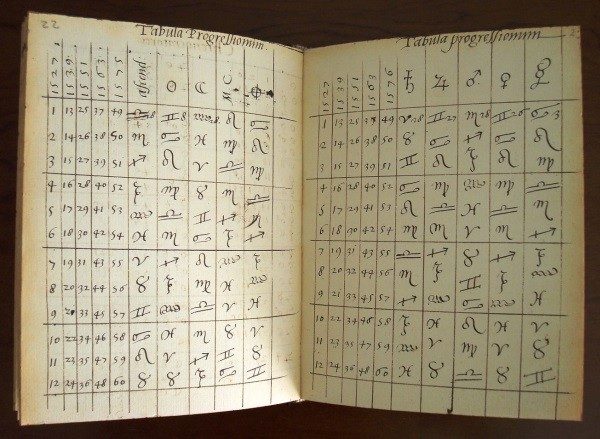 22
Tabula Progressionum
1527 1539 1551 1563 1575 Ascend ☉ ☽
1 13 25 37 49 ♎ ♊ 8 ♒ 8 ♌ ♋
2 14 26 38 50 ♏ ♋ ♓ ♍ ♌
3 15 27 39 51 ♐ ♌ ♈ ♎ ♍
4 16 28 40 52 ♑ ♍ ♉ ♏ ♎
5 17 29 41 53 ♒ ♎ ♊ ♐ ♏
6 18 30 42 54 ♓ ♏ ♋ ♑ ♐
7 19 31 43 55 ♈ ♐ ♌ ♒ ♑
8 20 32 44 56 ♉ ♑ ♍ ♓ ♒
9 21 33 45 57 ♊ ♒ ♎ ♈ ♓
10 22 34 46 58 ♋ ♓ ♏ ♉ ♈
11 23 35 47 59 ♌ ♈ ♐ ♊ ♉
12 24 36 48 60 ♍ ♉ ♑ ♋ ♊
Tabula progressionum
1527 1539 1551 1563 1576 ♄ ♃ ♂ ♀ ☿
1 13 25 37 49 ♈ 28 ♊ 27 ♏ 28 ♊ 26 ♋ 3
2 14 26 38 50 ♉ ♋ ♐ ♋ ♌
3 15 27 39 51 ♊ ♌ ♑ ♌ ♍
4 16 28 40 52 ♋ ♍ ♒ ♍ ♎
5 17 29 41 53 ♌ ♎ ♓ ♎ ♏
6 18 30 42 54 ♍ ♏ ♈ ♏ ♐
7 19 31 43 55 ♎ ♐ ♉ ♐ ♑
8 20 32 44 56 ♏ ♑ ♊ ♑ ♒
9 21 33 45 57 ♐ ♒ ♋ ♒ ♓
10 22 34 46 58 ♑ ♓ ♌ ♓ ♈
11 23 35 47 59 ♒ ♈ ♍ ♈ ♉
12 24 36 48 60 ♓ ♉ ♎ ♉ ♊